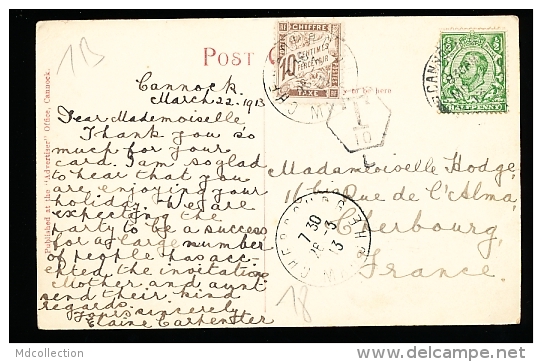 13
POST
CHIFFRE
10
CENTIMES
A PERCEVOIR
TAXE
HALFPENNY
Cannock.
March 22. 1913
Dear Mademoiselle
Thank you so
much for your
card. I am so glad
to hear that you
are enjoying your
holiday. We are
expecting the
party to be a success
for a large number
of people has acc-
epted the invitations
Mother and aunt
send their kind
regards.
Yours sincerely
Elaine Carpenter
Published at the "Advertiser" Office, Cannock.
T
10
L
Mademoiselle Hodge,
Rue de l'Alma,
Cherbourg,
France.
CHERBOURG
7 30
3
13
18
Mdcollection
www.delcampe.net